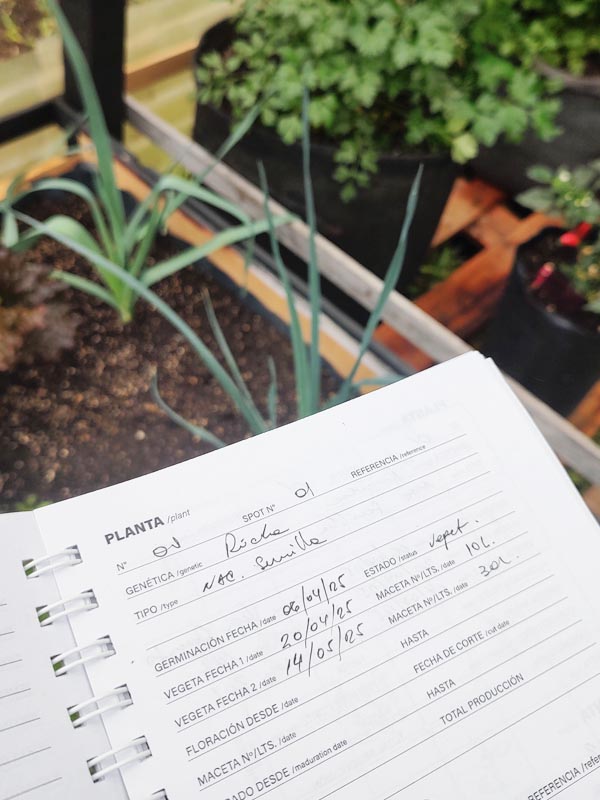 PLANTA /plant SPOT Nº 01 REFERENCIA /reference
Nº 01
GENÉTICA /genetic
TIPO /type NAC. Semilla
GERMINACIÓN FECHA /date 06/04/25 ESTADO /status veget.
VEGETA FECHA 1 /date 20/04/25 MACETA Nº/LTS. /date 10L.
VEGETA FECHA 2 /date 14/05/25 MACETA Nº/LTS. /date 30L.
FLORACIÓN DESDE /date HASTA
MACETA Nº/LTS. /date FECHA DE CORTE /cut date
ADO DESDE /maduration date HASTA
TOTAL PRODUCCIÓN
REFERENCIA /refer